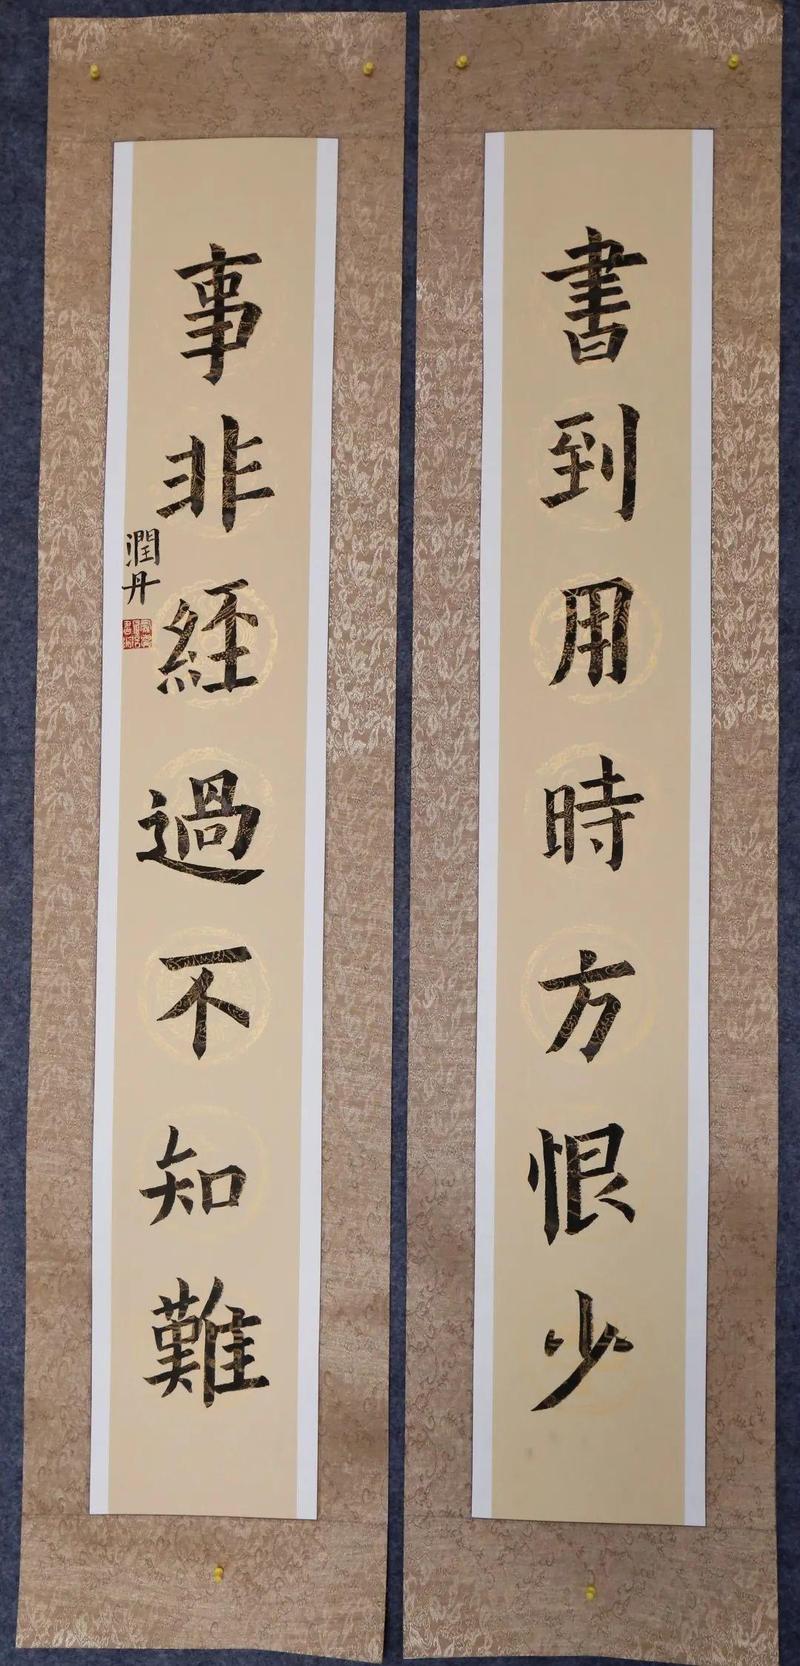 書到用時方恨少
事非經過不知難
潤丹